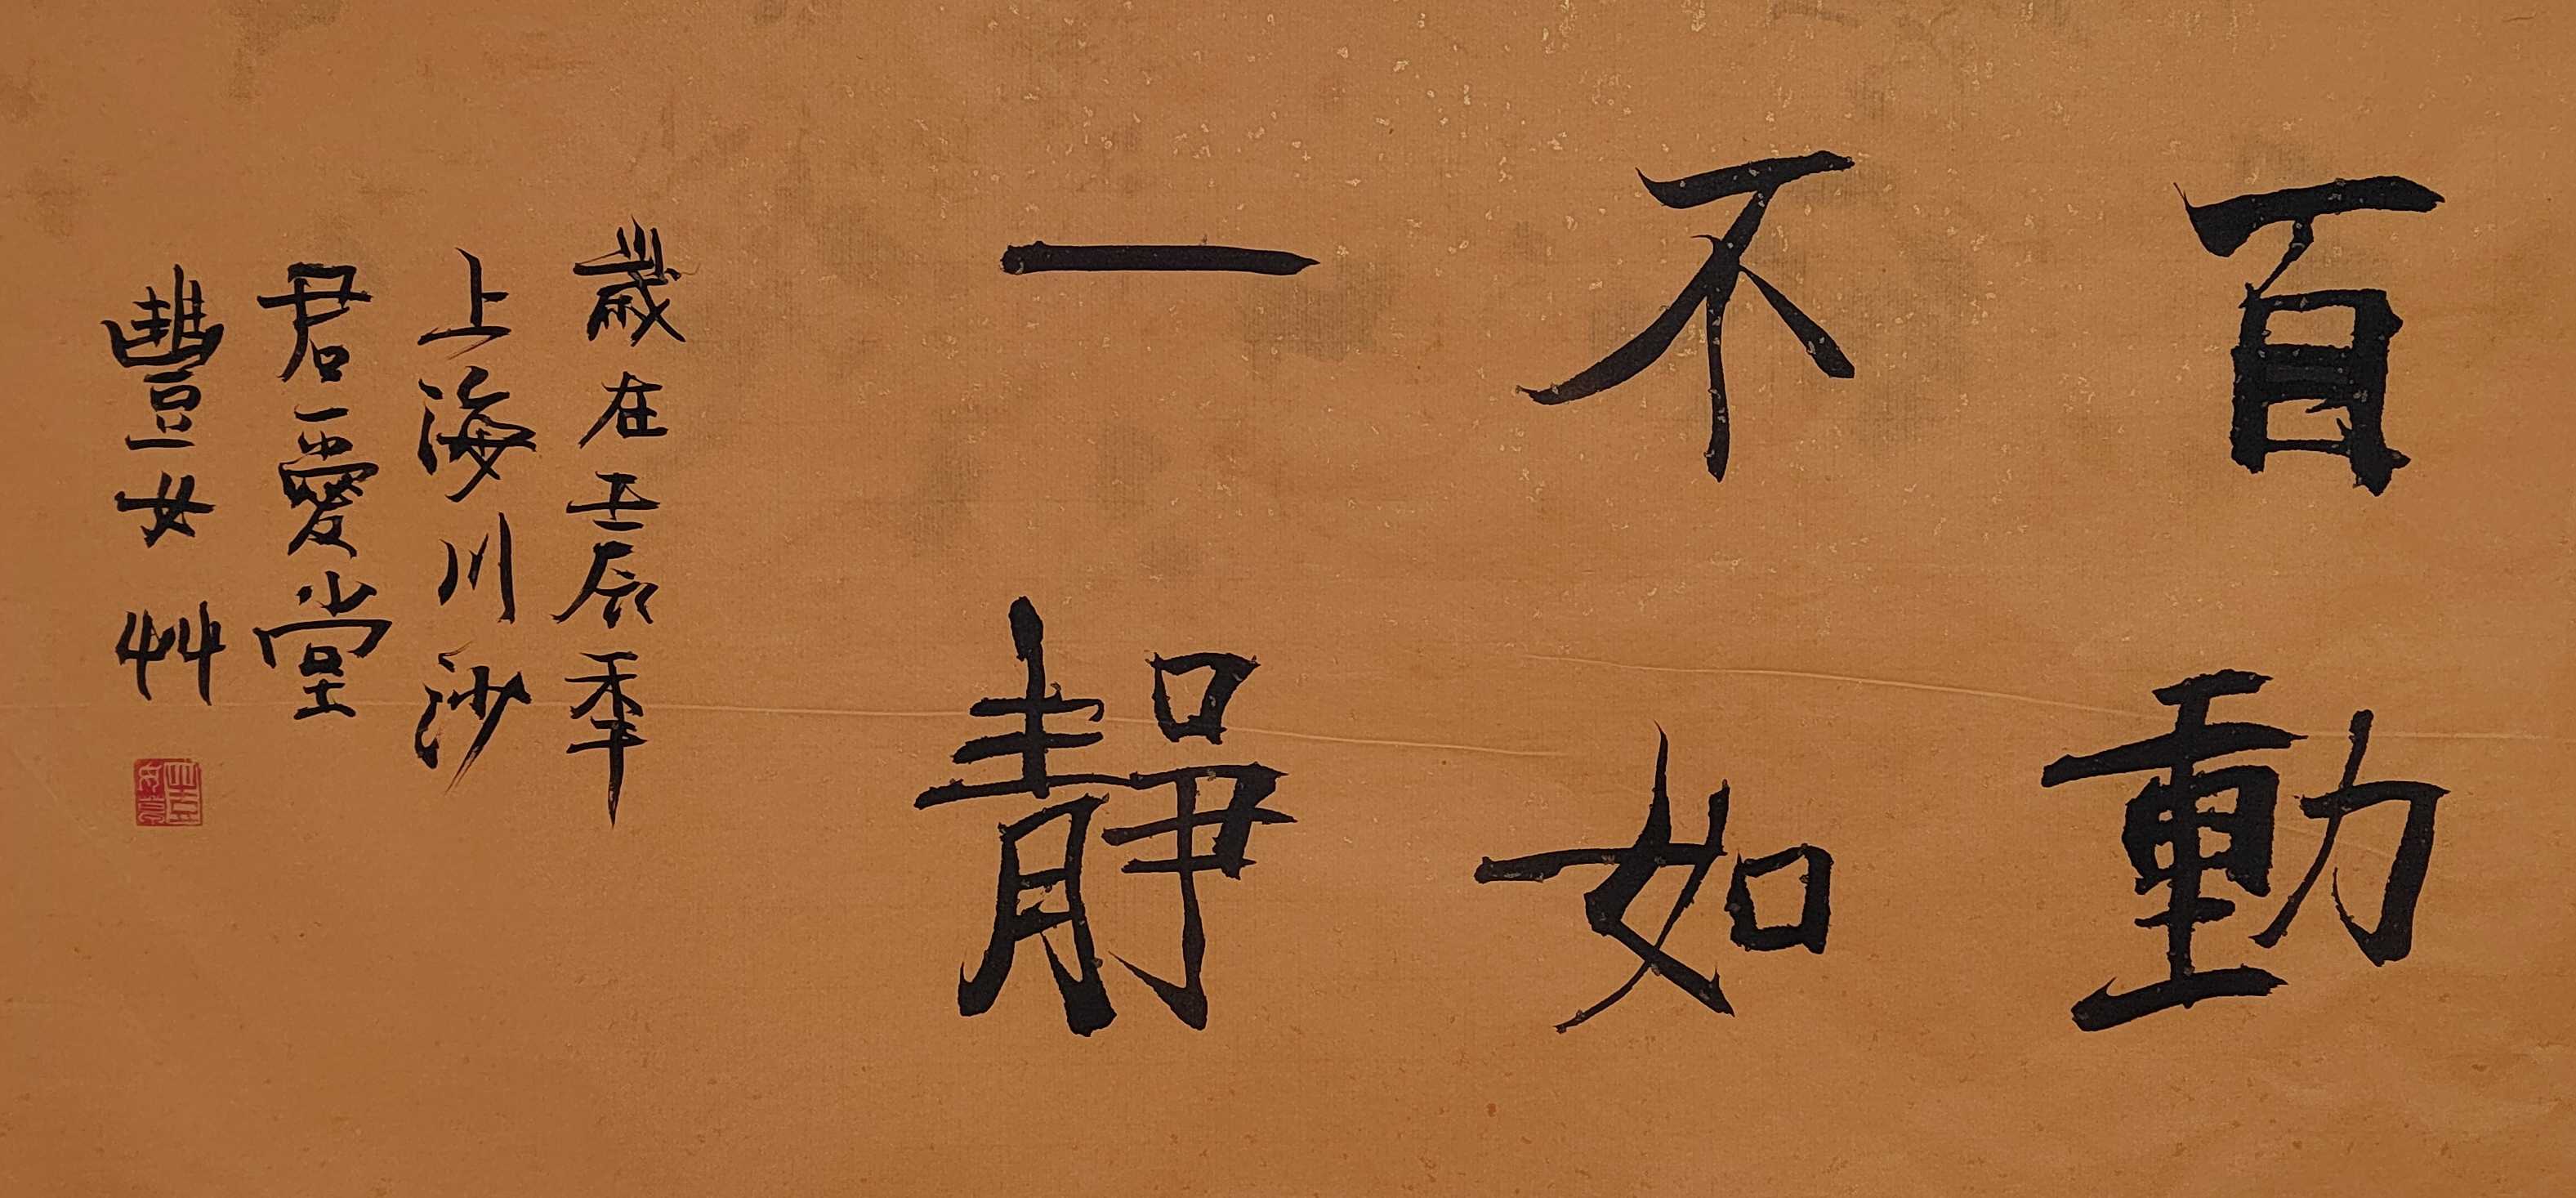 百動
不如
一靜
歲在壬辰年
上海川沙
君愛堂
豐女艸